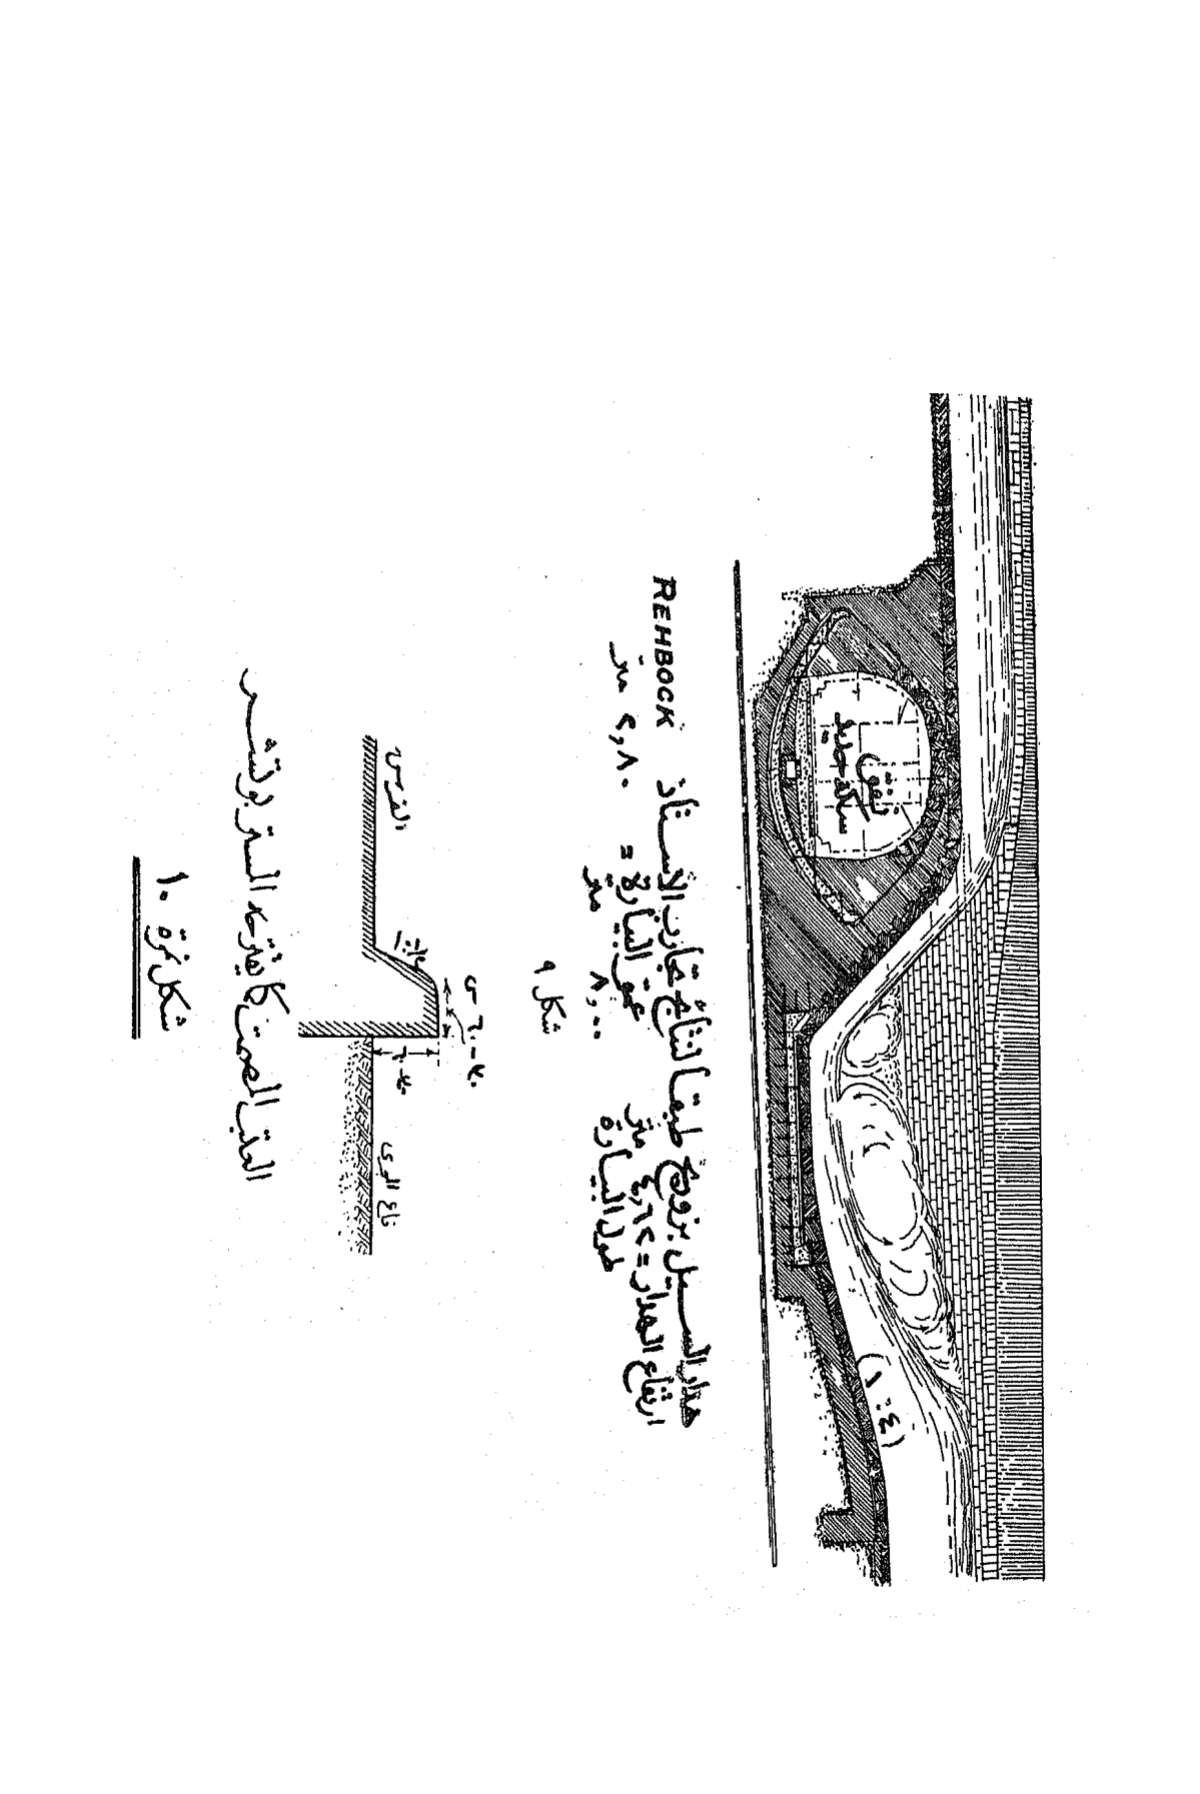 نفق
سكة حديد
(١:٤)
هدار السيل بزوغ طبقا لنتائج تجارب الأستاذ REHBOCK
ارتفاع الهدار = ٤,٦٢ متر عمق البيارة = ٢,٨٠ متر
طول البيارة ٨,٠٠ متر
شكل ٩
الفرش
قاع المجرى
العتب المصمت كما يقترحه المستر بوتشر
شكل نمرة ١٠